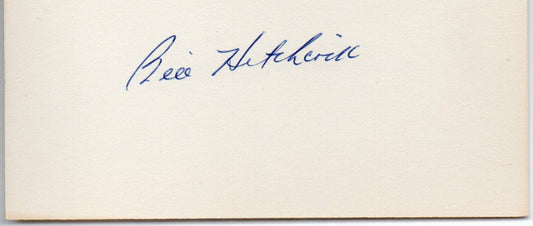 Bill Hitchcock